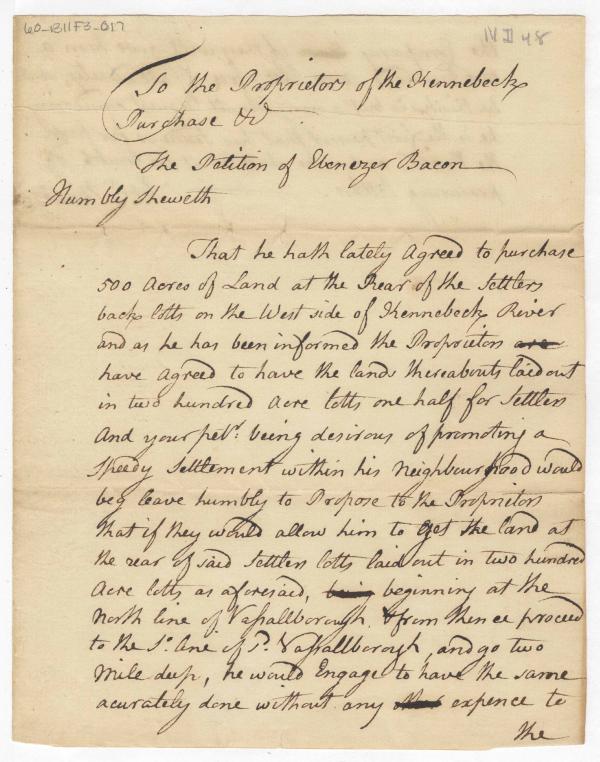 60-1311F3-017
IV II 48
To the Proprietors of the Kennebeck
Purchase &c
The Petition of Ebenezer Bacon
Humbly Sheweth
That he hath lately Agreed to purchase
500 Acres of Land at the Rear of the Settlers
back lotts on the West side of Kennebeck River
and as he has been informed the Proprietors are
have agreed to have the lands thereabouts laid out
in two hundred Acre lotts one half for Settlers
And your petr. being desirous of promoting a
Speedy Settlement within his Neighbourhood would
beg leave humbly to Propose to the Proprietors
that if they would allow him to Get the land at
the rear of said Settlers lotts laid out in two hundred
Acre lotts as aforesaid, being beginning at the
North line of Vassallborough & from thence proceed
to the So. line of sd. Vassallborough, and go two
Mile deep, he would Engage to have the same
acurately done without any expence to
the